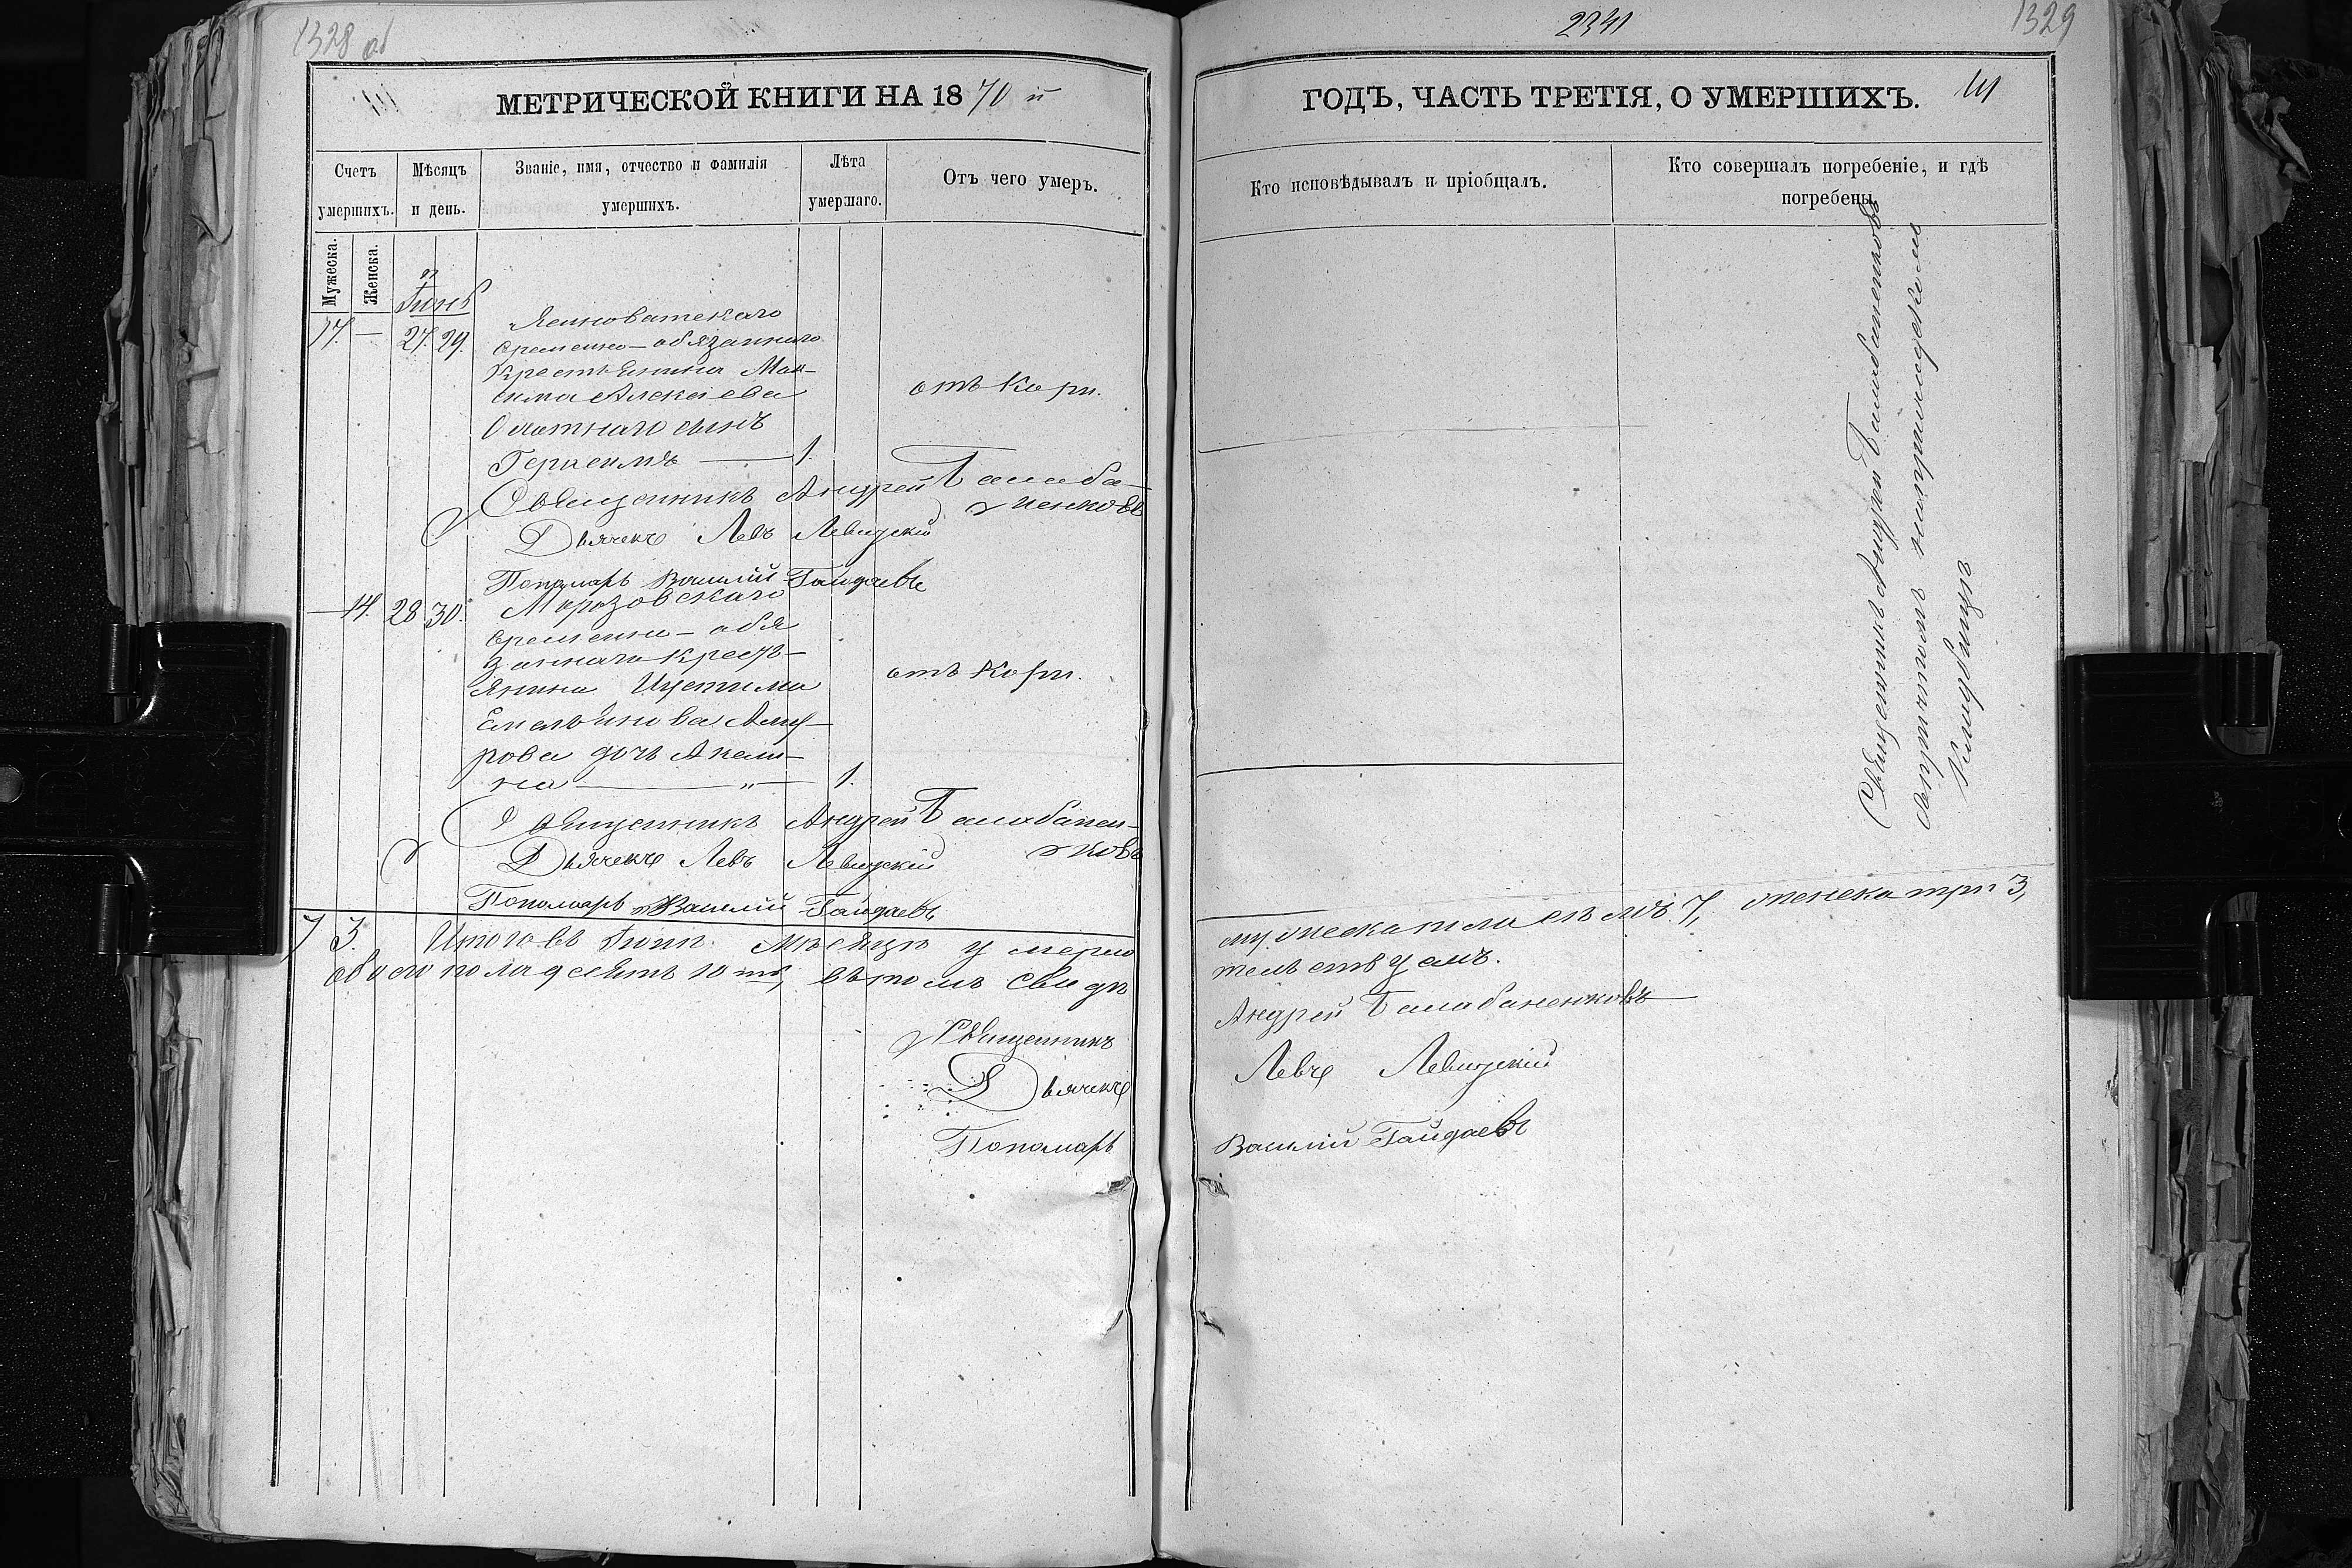 1328 об
МЕТРИЧЕСКОЙ КНИГИ НА 1870 й
Счетъ умершихъ.
Мужеска.
Женска.
Мѣсяцъ и день.
Званіе, имя, отчество и фамилія умершихъ.
Лѣта умершаго.
Отъ чего умеръ.
Іюнь
17. — 27. 29.
Ясиноватскаго
временно-обязаннаго
Крестьянина Мак-
сима Алексѣева
Охотнаго сынъ
Герасимъ — 1.
отъ Кори.
Священникъ Андрей Балаба-
ненковъ
Дьячекъ Левъ Левицкій
Пономарь Василій Гайдаевъ
— 14. 28 30.
Морозовскаго
временно-обя
заннаго Кресть-
янина Иустима
Емельянова
рова дочь Акили-
на — „ — 1.
отъ Кори.
Священникъ Андрей Балабанен-
ковъ
Дьячекъ Левъ Левицкій
Пономарь Василій Гайдаевъ
7 3. Итого въ Іюнѣ мѣсяцѣ умерло
обоего пола десять 10ть, въ томъ свидѣ
Священникъ
Дьячекъ
Пономарь
2341
1329
ГОДЪ, ЧАСТЬ ТРЕТІЯ, О УМЕРШИХЪ. 111
Кто исповѣдывалъ и пріобщалъ.
Кто совершалъ погребеніе, и гдѣ погребены.
Священникъ Андрей Балабаненковъ
на приходскомъ
Кладбищѣ
мужеска пола семь 7, женска три 3,
тельствуемъ.
Андрей Балабаненковъ
Левъ Левицкій
Василій Гайдаевъ